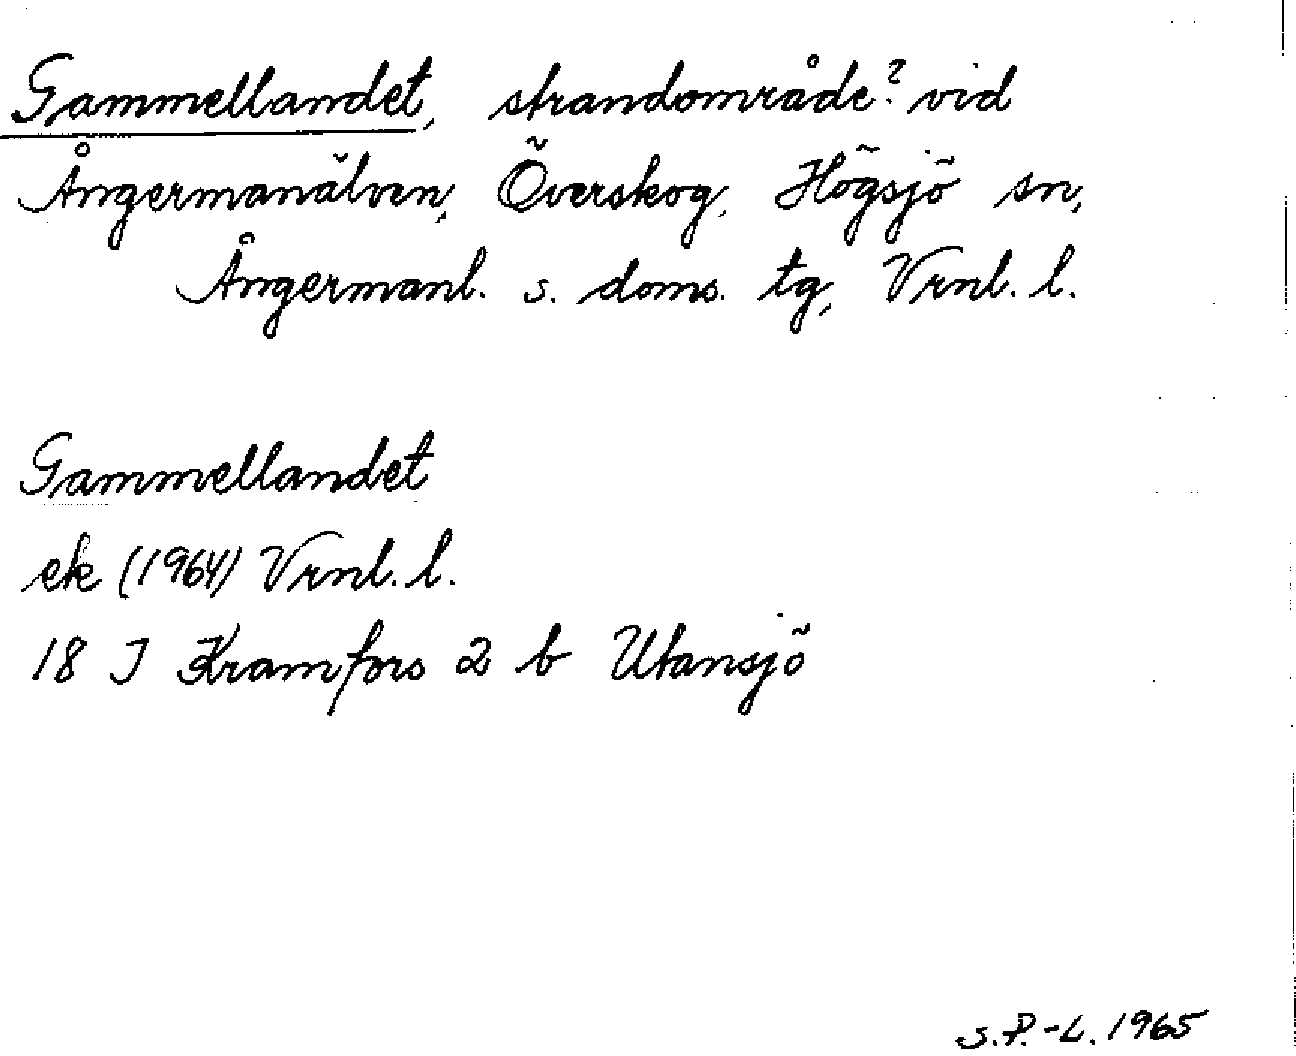 Gammellandet, strandområde? vid
Ångermanälven, Överskog, Högsjö sn,
Ångermanl. s. doms. tg, Vrnl. l.
Gammellandet
ek (1964) Vrnl. l.
18 I Kramfors 2 b Utansjö
S.P.-L. 1965